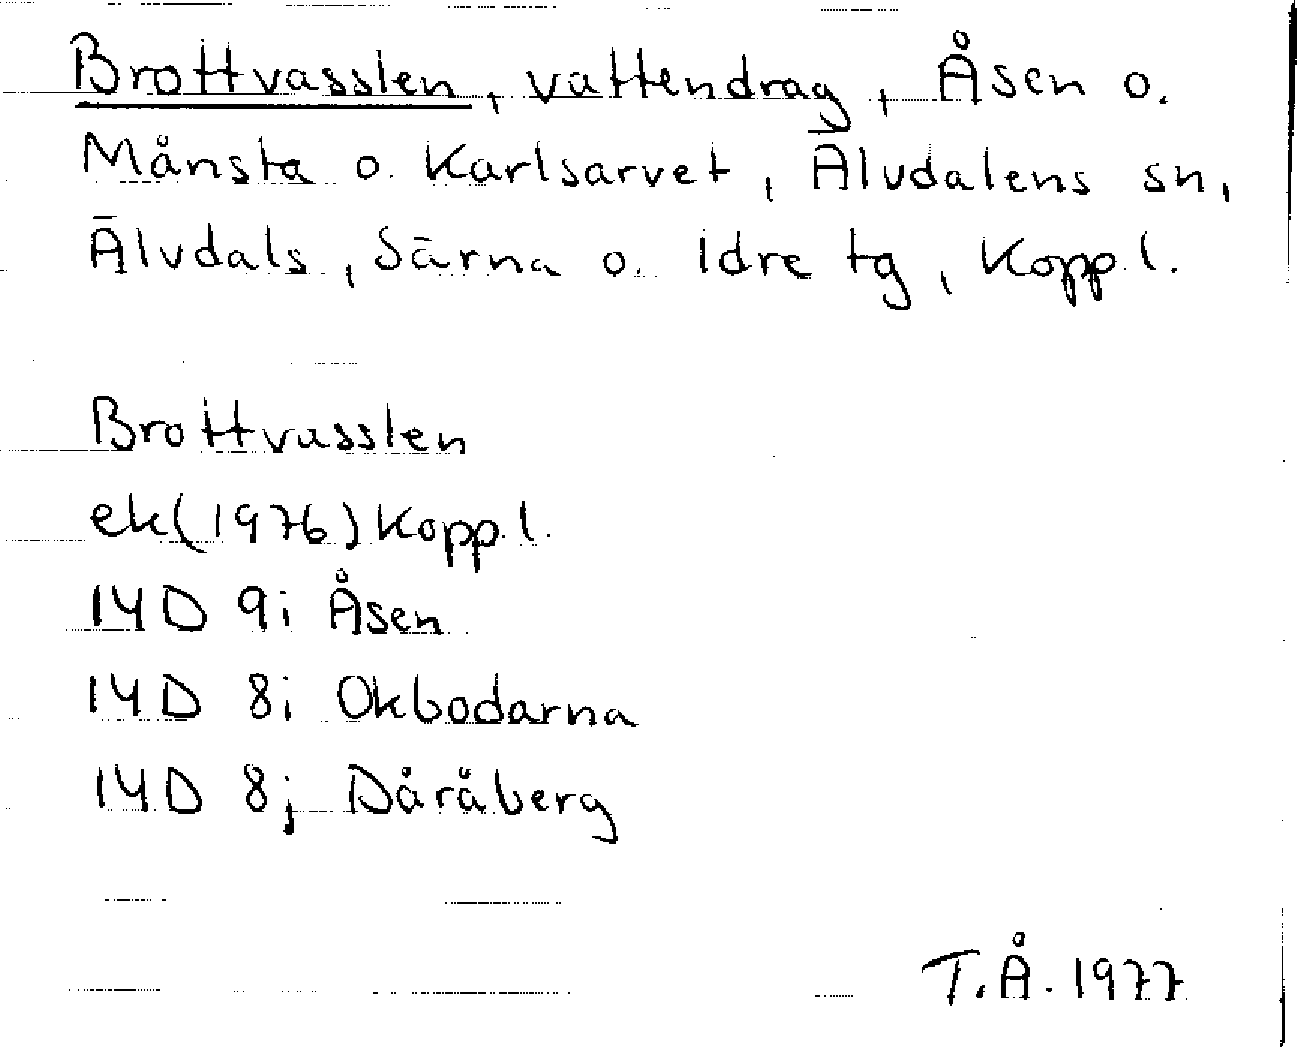 Brottvasslen, vattendrag, Åsen o.
Månsta o. Karlsarvet, Älvdalens sn,
Älvdals, Särna o. Idre tg, Kopp.l.
Brottvasslen
ek(1976) Kopp.l.
14D 9i Åsen
14D 8i Okbodarna
14D 8j Dåråberg
T.Å. 1977